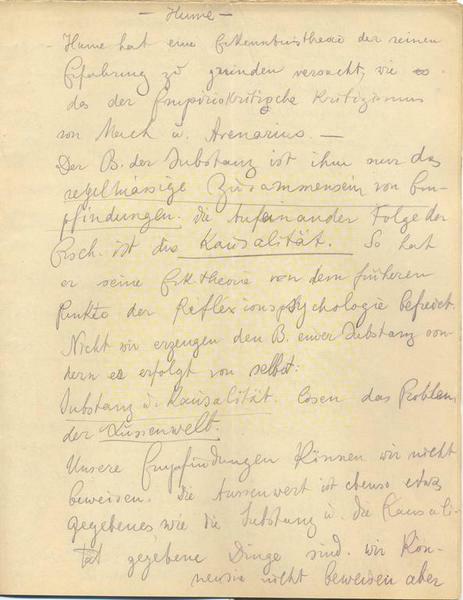 — Hume —
Hume hat eine Erkenntnistheorie der reinen
Erfahrung zu gründen versucht, wie
das der Empiriokritische Kritizismus
von Mach u. Avenarius. —
Der B. der Substanz ist ihm nur das
regelmässige Zusammensein von Em-
pfindungen. die Aufeinander Folge der
Ersch. ist die Kausalität. So hat
er seine Erk theorie von dem früheren
Punkte der Reflexionspsychologie befreit.
Nicht wir erzeugen den B. einer Substanz son-
dern es erfolgt von selbst:
Substanz u. Kausalität. lösen das Problem
der Aussenwelt.
Unsere Empfindungen können wir nicht
beweisen. die Aussenwelt ist ebenso etwas
gegebenes wie die Substanz u. die Kausali-
tät gegebene Dinge sind. wir kön-
nen sie nicht beweisen aber